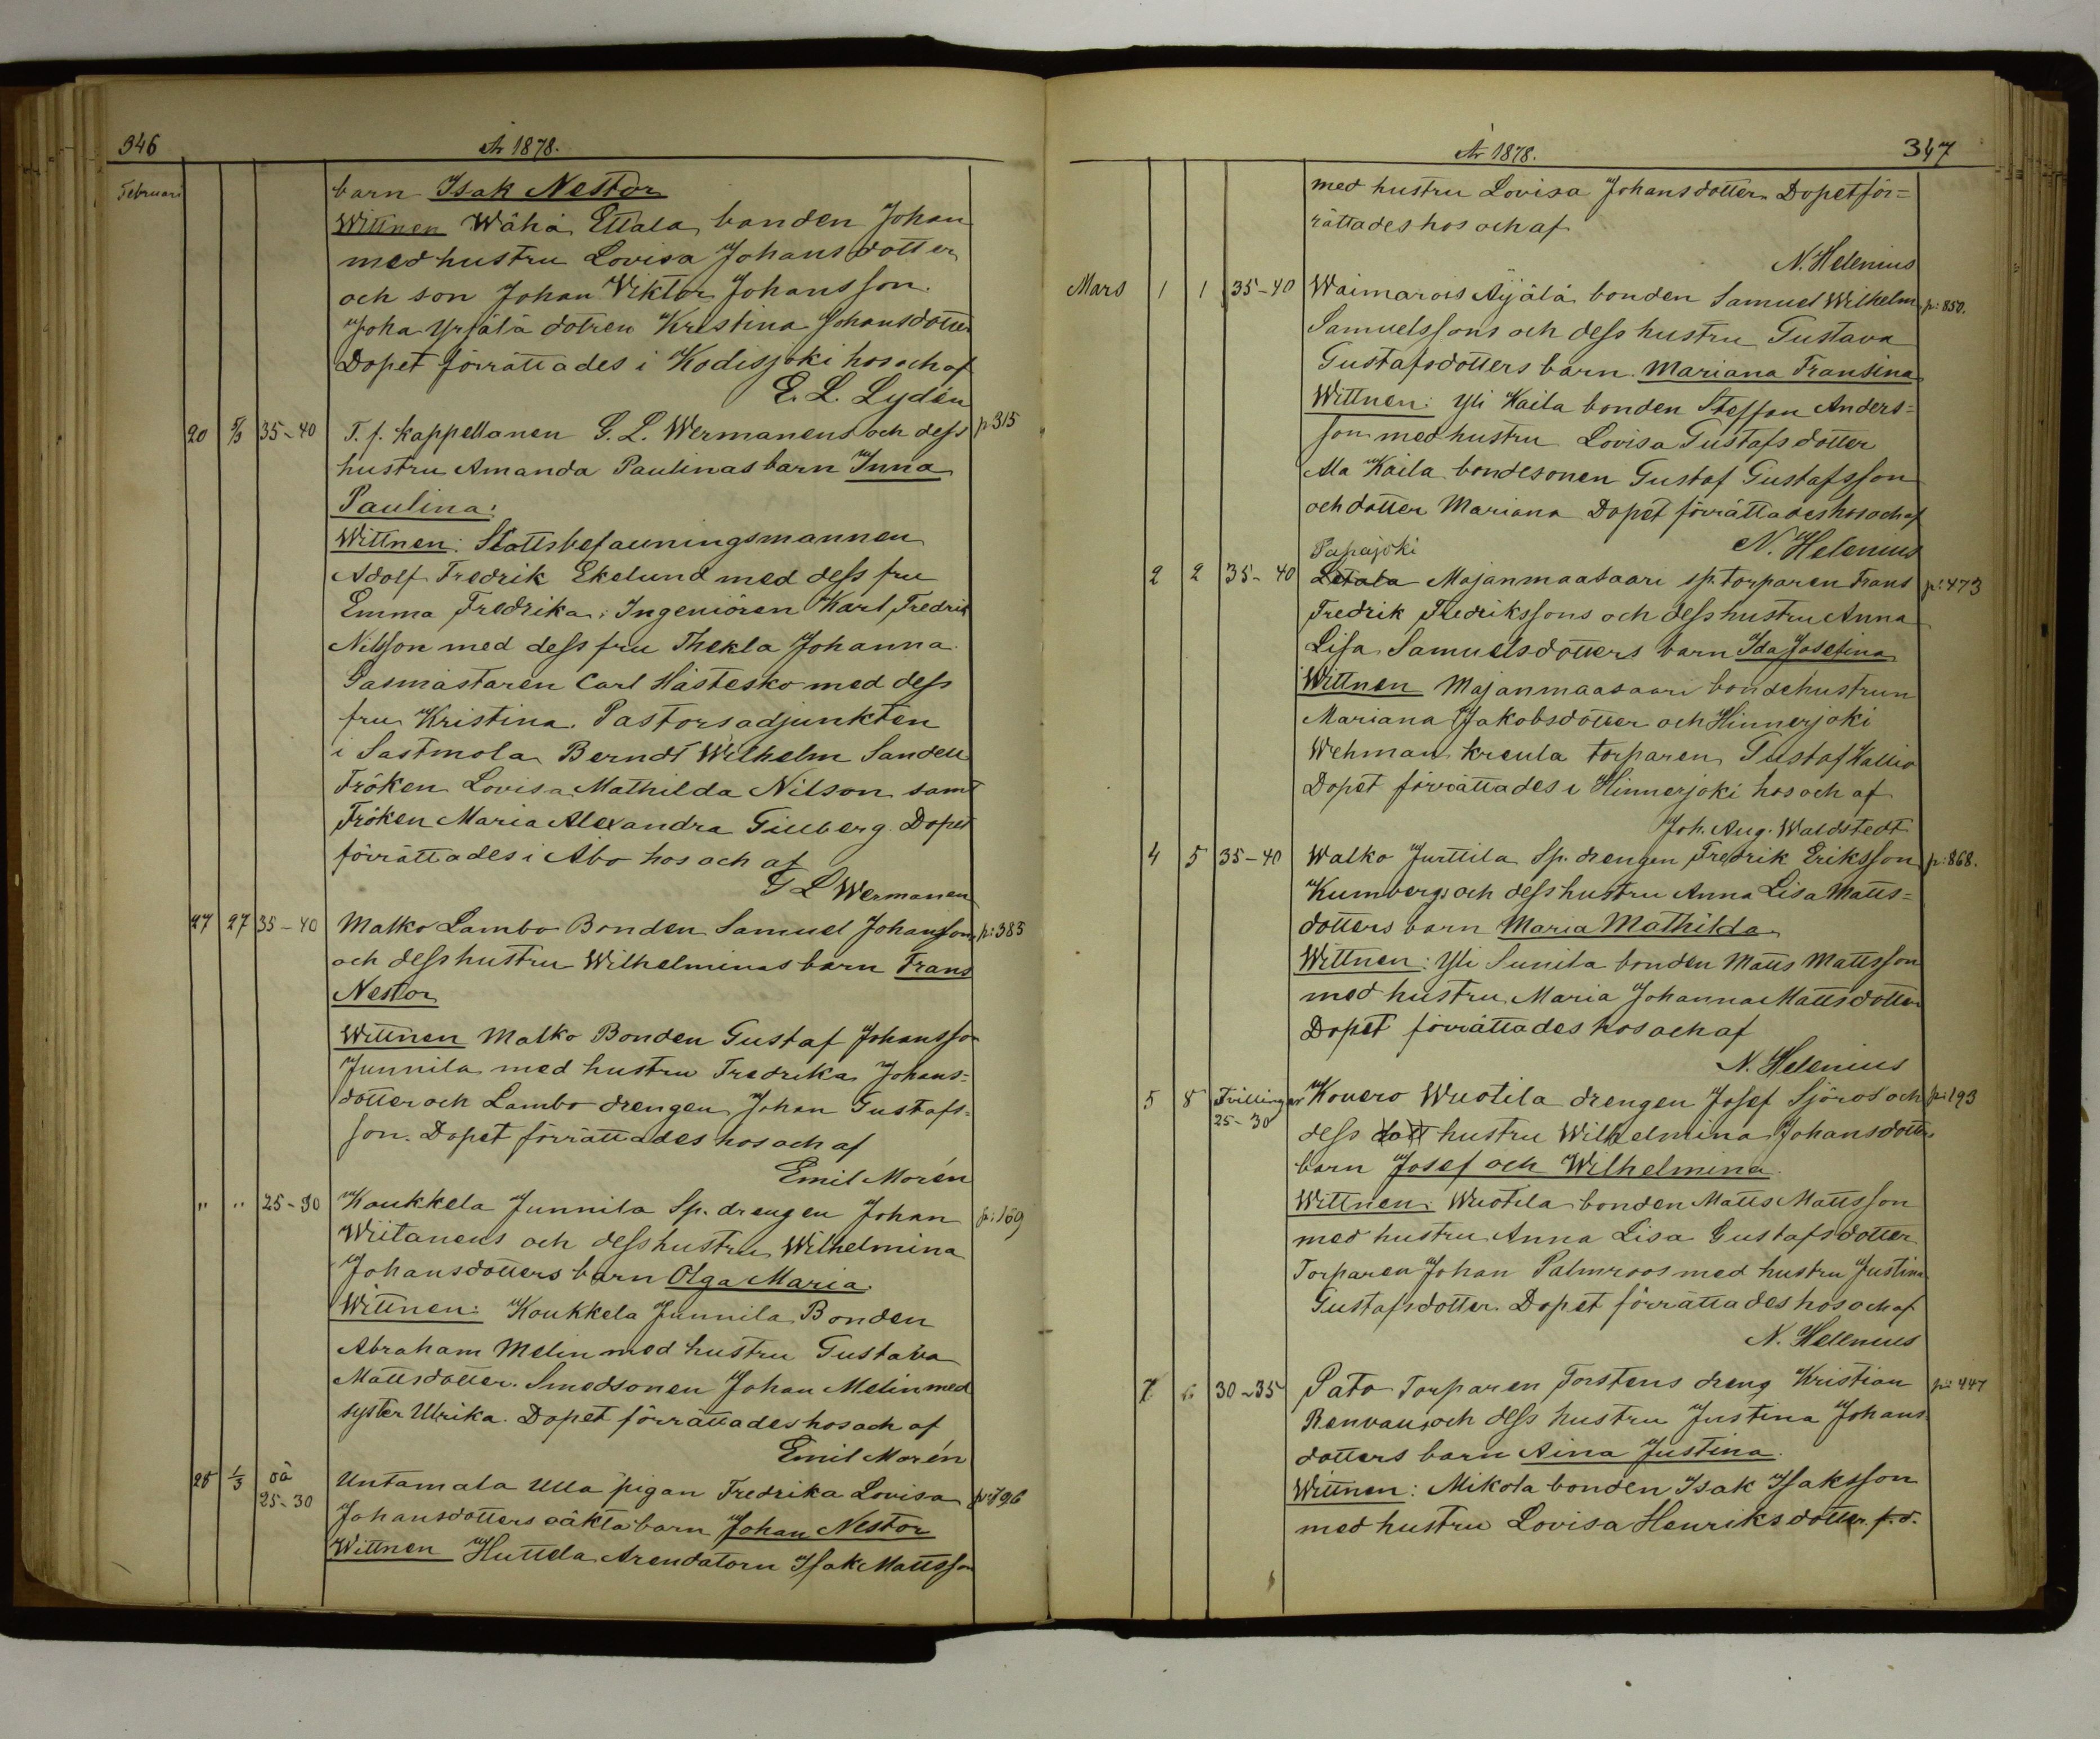 346
År 1878.
Februari
barn Isak Nestor
Wittnen Wähä Ettala bonden Johan
med hustru Lovisa Johansdotter
och son Johan Viktor Johansson.
Joha Yrjälä dotren Kristina Johansdotter
Dopet förrättades i Kodisjoki hos och af
E. L. Lydén
20 5/3 35-40 T. f. Kappellanen G. L. Wermanens och dess p: 315
hustru Amanda Paulinas barn Inna
Paulina.
Wittnen: Slottsbefauningsmannen
Adolf Fredrik Ekelund med dess fru
Emma Fredrika. Ingeniören Karl Fredrik
Nilsson med dess fru Thekla Johanna.
Gasmästaren Carl Hästesko med dess
fru Kristina. Pastorsadjunkten
i Sastmola Berndt Wilhelm Sandell
Fröken Lovisa Mathilda Nilson samt
Fröken Maria Alexandra Gillberg. Dopet
förrättades i Åbo hos och af
G L Wermanen
27 27 35-40 Malko Lambo Bonden Samuel Johansson p: 385
och dess hustru Wilhelminas barn Frans
Nestor
Wittnen Malko Bonden Gustaf Johansson
Junnila med hustru Fredrika Johans=
dotter och Lambo drengen Johan Gustafs=
son. Dopet förrättades hos och af
Emil Morén
" " 25-30 Koukkela Junnila Sp. drengen Johan p: 159
Wiitanens och dess hustru Wilhelmina
Johansdotters barn Olga Maria.
Wittnen: Koukkela Junnila Bonden
Abraham Melin med hustru Gustava
Mattsdotter. Smedsonen Johan Melin med
syster Ulrika. Dopet förrättades hos och af
Emil Morén
28 1/3 oä 25-30 Untamala Ulla pigan Fredrika Lovisa p: 796
Johansdotters oäkta barn Johan Nestor
Wittnen Huttela Arendatorn Isak Mattsson
År 1878.
347
med hustru Lovisa Johansdotter Dopet för=
rättades hos och af
N. Helenius
Mars 1 1 35-40 Waimaros Äyälä bonden Samuel Wilhelm p: 850.
Samuelssons och dess hustru Gustava
Gustafsdotters barn. Mariana Fransina
Wittnen: Yli Kaila bonden Steffan Anders=
son med hustru Lovisa Gustafsdotter
Ala Kaila bondesonen Gustaf Gustafsson
och dotter Mariana Dopet förrättades hos och af
N. Helenius
Papajoki
2 2 35-40 Letala Majanmaasaari sp. torparen Frans p: 473
Fredrik Fredrikssons och dess hustru Anna
Lisa Samuelsdotters barn Ida Josefina
Wittnen Majanmaasaari bondehustrun
Mariana Jakobsdotter och Hinnerjoki
Wehman Kreula torparen Gustaf Kallio
Dopet förrättades i Hinnerjoki hos och af
Joh. Aug. Waldstedt
4 5 35-40 Walko Jurttila Sp. drengen Fredrik Eriksson p: 868.
Kumbergs och dess hustru Anna Lisa Matts=
dotters barn Maria Mathilda
Wittnen: Yli Sunila bonden Matts Mattsson
med hustru Maria Johanna Mattsdotter
Dopet förrättades hos och af
N. Helenius
5 8 Tvillingar 25-30 Kouero Wuotila drengen Josef Sjöros och p: 193
dess dott hustru Wilhelmina Johansdotters
barn Josef och Wilhelmina.
Wittnen: Wuotila bonden Matts Mattsson
med hustru Anna Lisa Gustafsdotter
Torparen Johan Palmroos med hustru Justina
Gustafsdotter. Dopet förrättades hos och af
N. Helenius
7 30-35 Pato Torparen Torstens dreng Kristian p: 447
Renvaus och dess hustru Justina Johans
dotters barn Aina Justina.
Wittnen: Mikola bonden Isak Isaksson
med hustru Lovisa Henriksdotter. f.d.